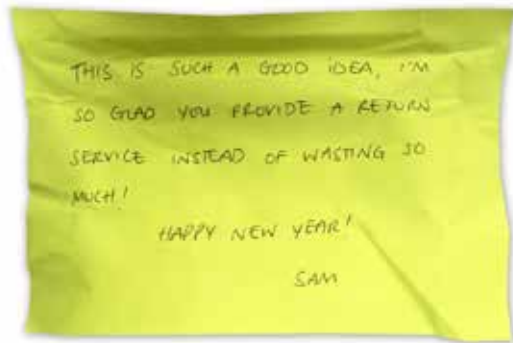 THIS IS SUCH A GOOD IDEA, I'M
SO GLAD YOU PROVIDE A RETURN
SERVICE INSTEAD OF WASTING SO
MUCH!
HAPPY NEW YEAR!
SAM